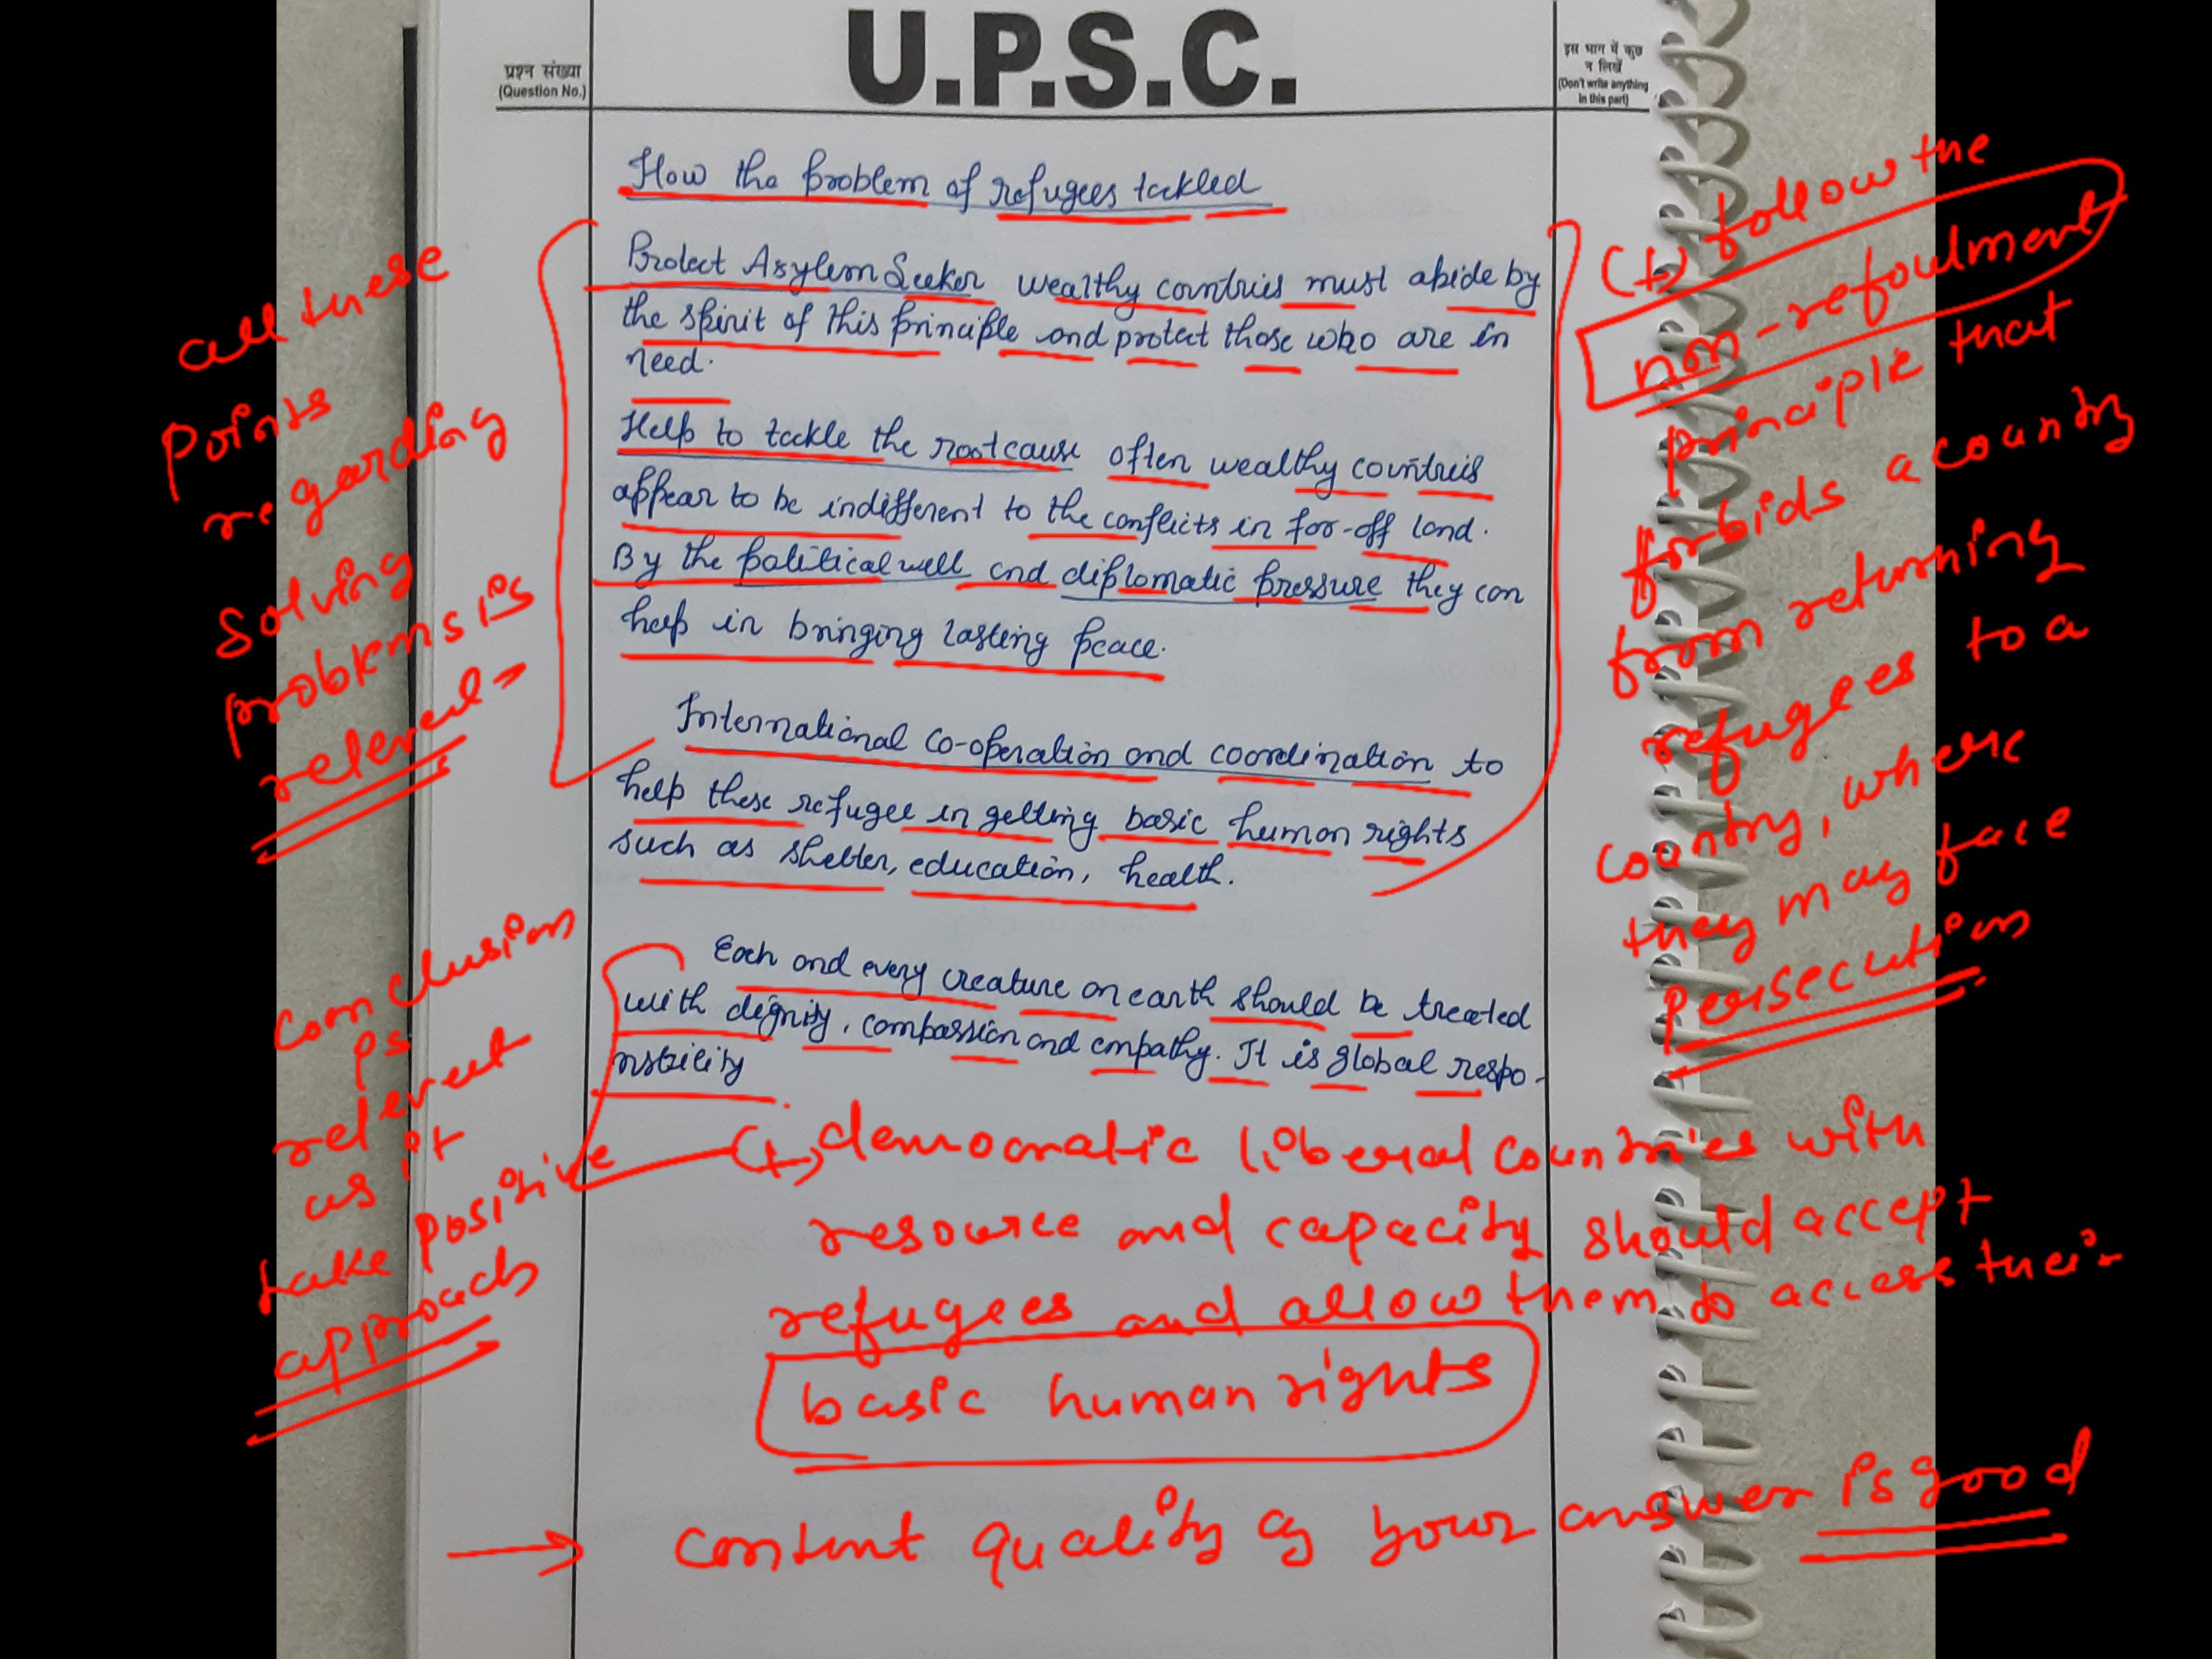 U.P.S.C.
प्रश्न संख्या
(Question No.)
इस भाग में कुछ
न लिखें
(Don't write anything
in this part)
How the problem of refugees tackled
Protect Asylem Seeker wealthy countries must abide by
the spirit of this principle and protect those who are in
need.
Help to tackle the root cause often wealthy countries
appear to be indifferent to the conflicts in for-off land.
By the political well and diplomatic pressure they can
help in bringing lasting peace.
International co-operation and coordination to
help these refugee in getting basic human rights
such as shelter, education, health.
Each and every creature on earth should be treated
with dignity, compassion and empathy. It is global respo-
nsibility
all these
points
regarding
solving
problems is
relevent
conclusion
is
relevent
as it
take positive
approach
(+) follow the
non-refoulment
principle that
forbids a country
from returning
refugees to a
country, where
they may face
persecution
(+) democratic liberal countries with
resource and capacity should accept
refugees and allow them to access their
basic human rights
→ content quality of your answer is good